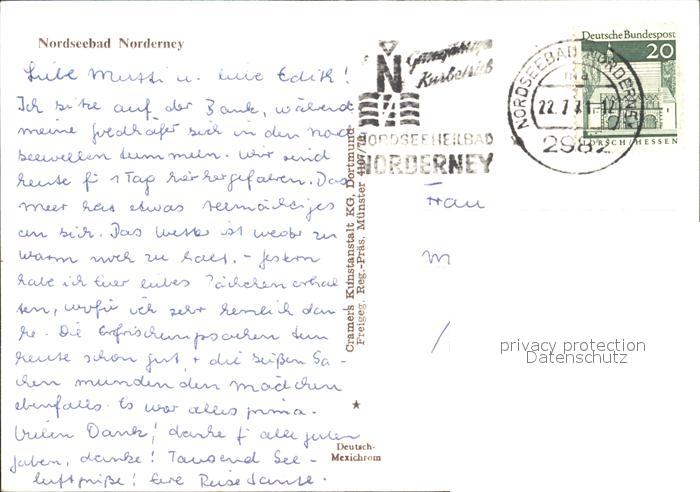 Nordseebad Norderney
Liebe Mutti u. liebe Edith!
Ich sitze auf der Bank, während
meine sich in den Nord
seewellen tummeln. Wir sind
heute f. 1 Tag hierhergefahren. Das
Meer hat etwas Allmächtiges
an sich. Das Wetter ist weder zu
warm noch zu kalt. - Gestern
habe ich Euer liebes Päckchen erhal
ten, wofür ich sehr herzlich dan-
ke. Die Erfrischungssachen tun
heute schon gut, + die süßen Sa-
chen munden den Mädchen
ebenfalls. Es war alles prima.
Vielen Dank! danke f. alle guten
Gaben, danke! Tausend See-
luftgrüße! Eure Reisetante.
Cramers Kunstanstalt KG, Dortmund
Freigeg. Reg.-Präs. Münster 4107/78
Deutsch-
Mexichrom
N
Ganzjähriger
Kurbetrieb
NORDSEEHEILBAD
NORDERNEY
NORDSEEBAD NORDERNEY
22.7.71-12
2982
Deutsche Bundespost
20
LORSCH/HESSEN
Frau
M
privacy protection
Datenschutz